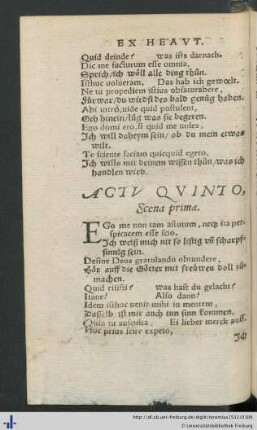 EX HEAVT.
Quid deinde? was ists darnach.
Dic me facturum esse omnia,
Sprich/ich wöll alle ding thůn.
Isthuc volueram, Das hab ich gewoelt.
Ne tu propediem istius obsaturabere,
Fürwar/du wirdst des bald genůg haben.
Abi intrò, vide quid postulent,
Geh hinein/lůg was sie begeren.
Ego domi ero, si quid me voles,
Ich will daheym sein/ ob du mein etwas
wilt.
Te sciente faciam quicquid egero.
Ich wills mit deinem wissen thůn/was ich
handlen wird.
ACTV QVINTO,
Scena prima.
EGo me non tam astutum, neq; ita per-
spicacem esse scio.
Ich weiß mich nit so listig vñ scharpff-
sinnig sein.
Desine Deos gratulando obtundere,
Hör auff die Götter mit frewen doll zů-
machen.
Quid risisti? Was hast du gelacht?
Itane? Also dann?
Idem isthuc venit mihi in mentem,
Dasselb ist mit auch inn sinn kommen.
Quin tu ausculta, Ei lieber merck auff.
Huc prius scire expeto,
Ich
http://dl.ub.uni-freiburg.de/diglit/terentius1532/0106
© Universitätsbibliothek Freiburg